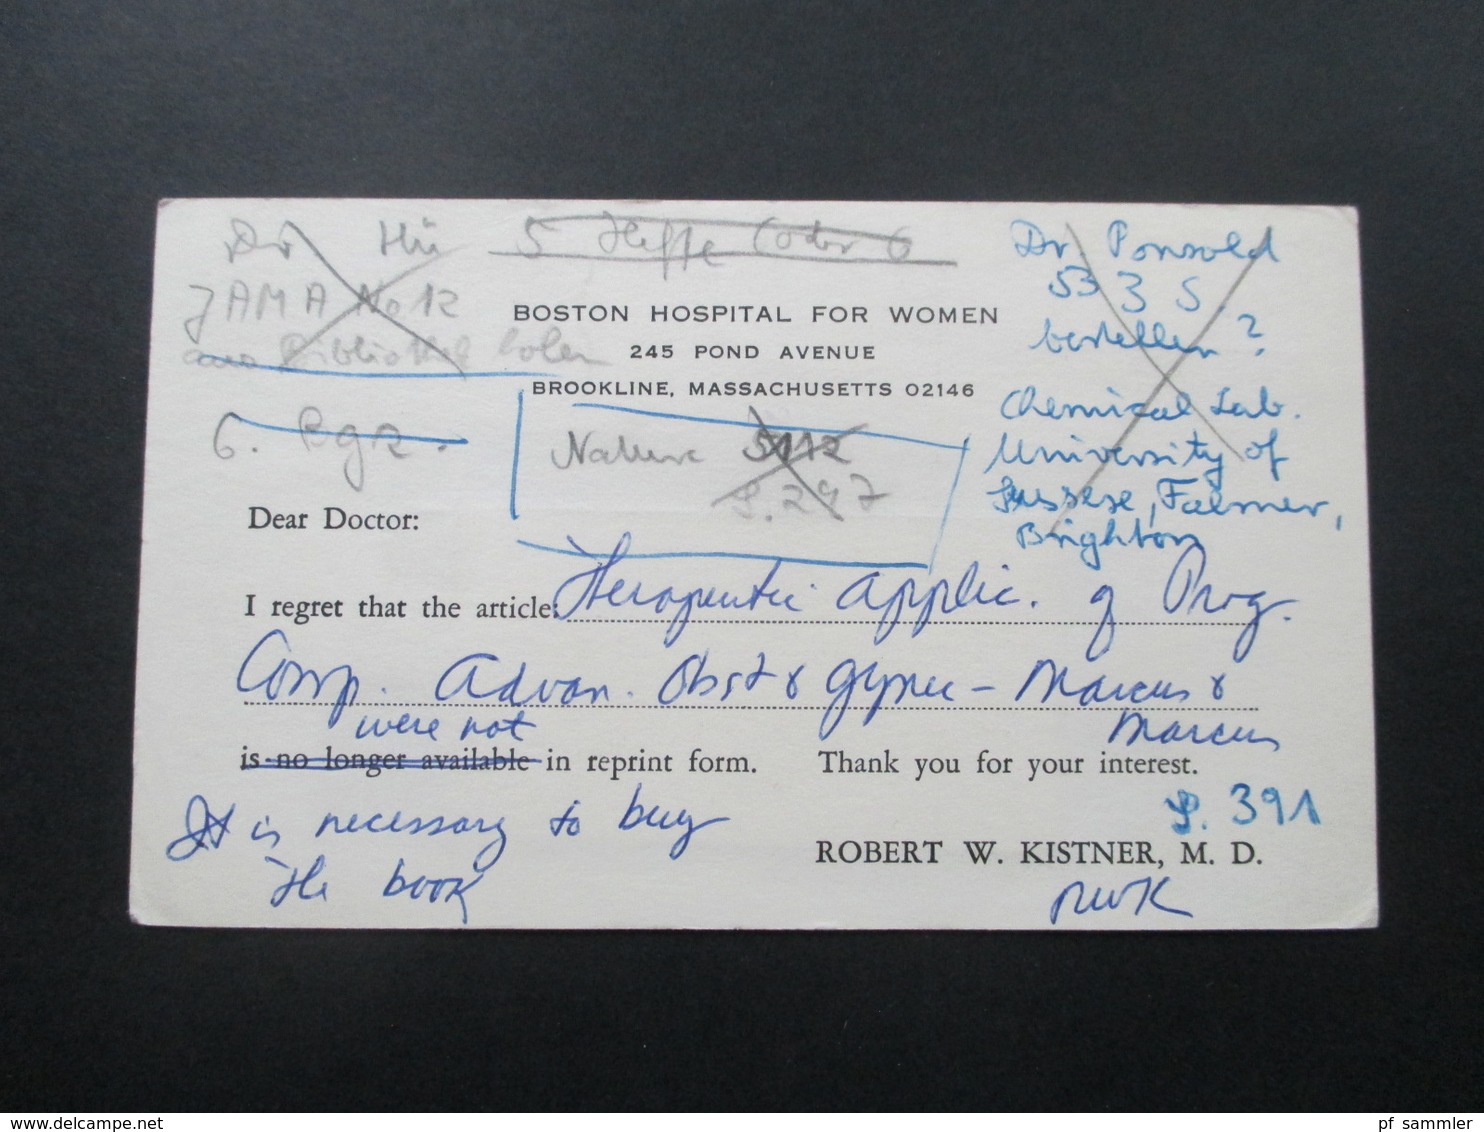 Dr Hü 5 Hefte (oder 6
JAMA No 12
aus Bibliothek holen
6.
BOSTON HOSPITAL FOR WOMEN
245 POND AVENUE
BROOKLINE, MASSACHUSETTS 02146
Nature 5112
S. 297
Dr Ponsold
53 3 5.
bestellen?
Chemical Lab.
University of
Sussex, Falmer,
Brighton
Dear Doctor:
I regret that the article: Therapeutic applic. of Prog.
Comp. Advan. Obst & Gynec - Marcus &
Marcus
were not
is no longer available in reprint form. Thank you for your interest.
It is necessary to buy
the book
S. 391
ROBERT W. KISTNER, M. D.
RWK
delcampe.net
pf_sammler